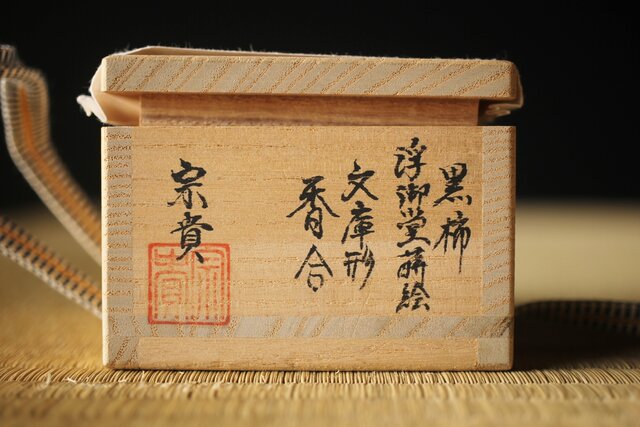 黒柿
浮御堂蒔絵
文庫形
香合
宗貴